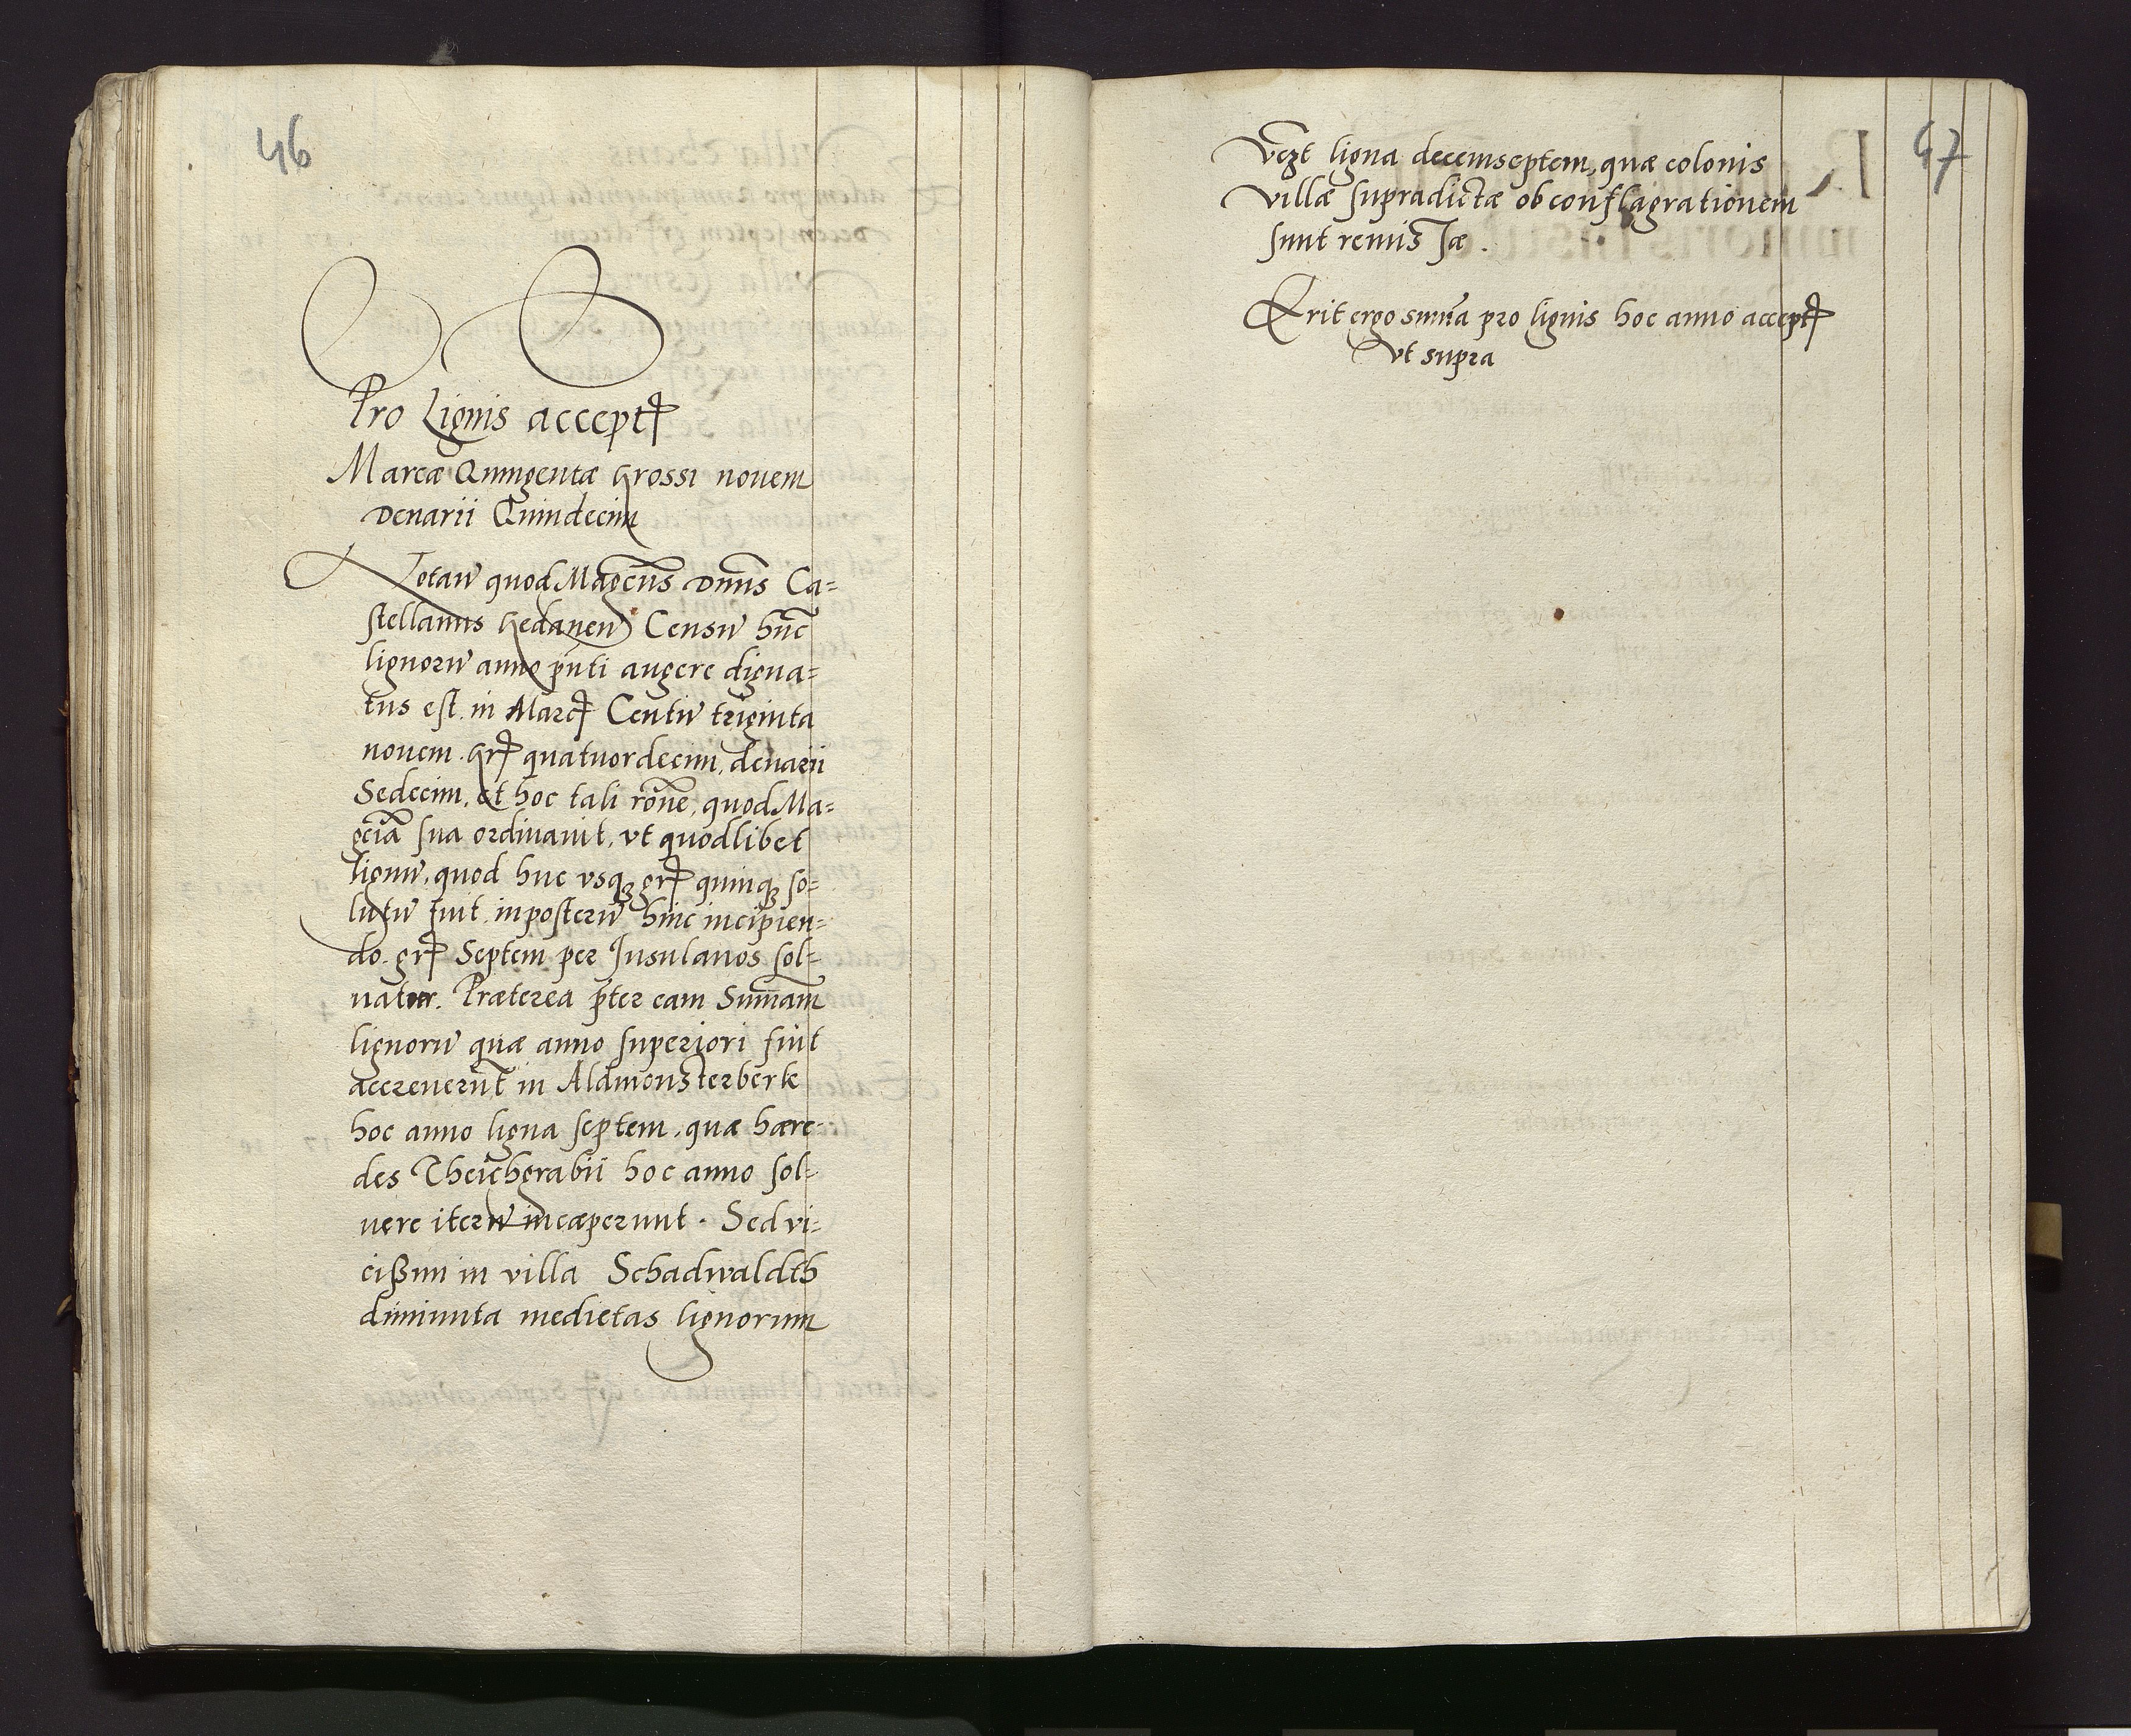 46
Pro Lignis accept
Marcæ Quingentæ Grossi nouem
Denarii Quindecim
Notanᵈ quod Magcus Dnus Ca=
stellanus Gedanen Censū hūc
lignorū anno pñti augere digna=
tus est. in Marc Centū triginta
nouem. Gr quatuordecim, denarii
Sedecim. et hoc tali rone, quod Ma=
gcia sua ordinauit, vt quodlibet
lignū, quod huc vsqȝ gr quinqȝ so=
lutū fuit. inposterū hinc incipien=
do. gr Septem per Insulanos sol=
uatur. Præterea p̄ter eam Summam
lignorū quæ anno superiori fuit
accreuerūt in Aldmonsterberk
hoc anno ligna septem, quæ hære-
des Theichgrabii hoc anno sol=
uere iterū incæperunt. Sed vi=
cißim in villa Schadwaldth
diminuta medietas lignorum
47
Vezt ligna decemseptem, quæ colonis
villæ supradictæ ob conflagrationem
sunt remissæ.
Erit ergo summa pro lignis hoc anno accept
vt supra